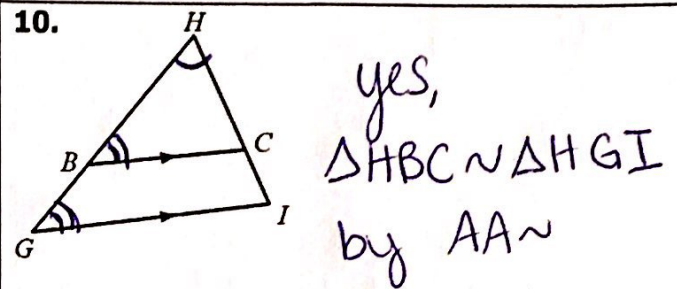 10.
H
B
C
G
I
yes,
△HBC ~ △HGI
by AA~